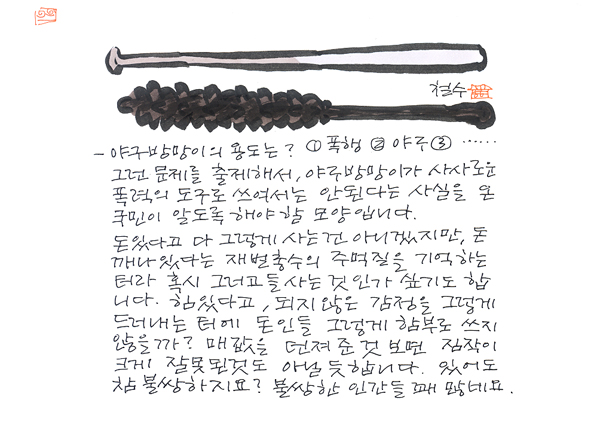 철수
- 야구방망이의 용도는? ① 폭행 ② 야구 ③ ……
그런 문제를 출제해서, 야구방망이가 사사로운
폭력의 도구로 쓰여서는 안된다는 사실을 온
국민이 알도록 해야 할 모양입니다.
돈있다고 다 그렇게 사는건 아니겠지만, 돈
깨나 있다는 재벌총수의 주먹질을 기억하는
터라 혹시 그러고들 사는 것인가 싶기도 합
니다. 힘있다고, 되지않은 감정을 그렇게
드러내는 터에 돈인들 그렇게 함부로 쓰지
않을까? 매값을 던져준 것 보면 짐작이
크게 잘못된것도 아닐 듯합니다. 있어도
참 불쌍하지요? 불쌍한 인간들 꽤 많네요.